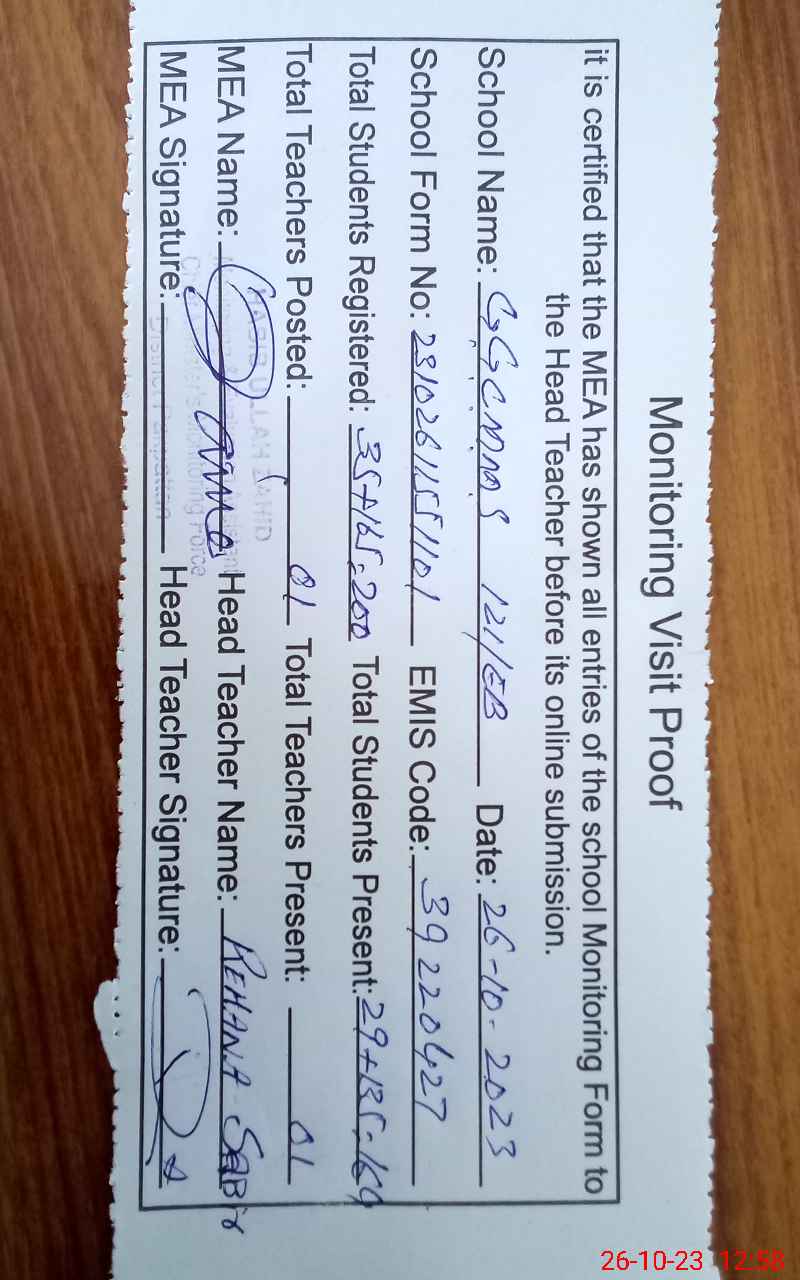 Monitoring Visit Proof
it is certified that the MEA has shown all entries of the school Monitoring Form to
the Head Teacher before its online submission.
School Name: GGCMMS 121/EB Date: 26-10-2023
School Form No: 23102611551101 EMIS Code: 39220427
Total Students Registered: 35+165=200 Total Students Present: 29+135=164
Total Teachers Posted: 01 Total Teachers Present: 01
MEA Name: Head Teacher Name: REHANA SABIR
MEA Signature: Head Teacher Signature:
HABIB ULLAH
District Pakpattan
26-10-23 12:58